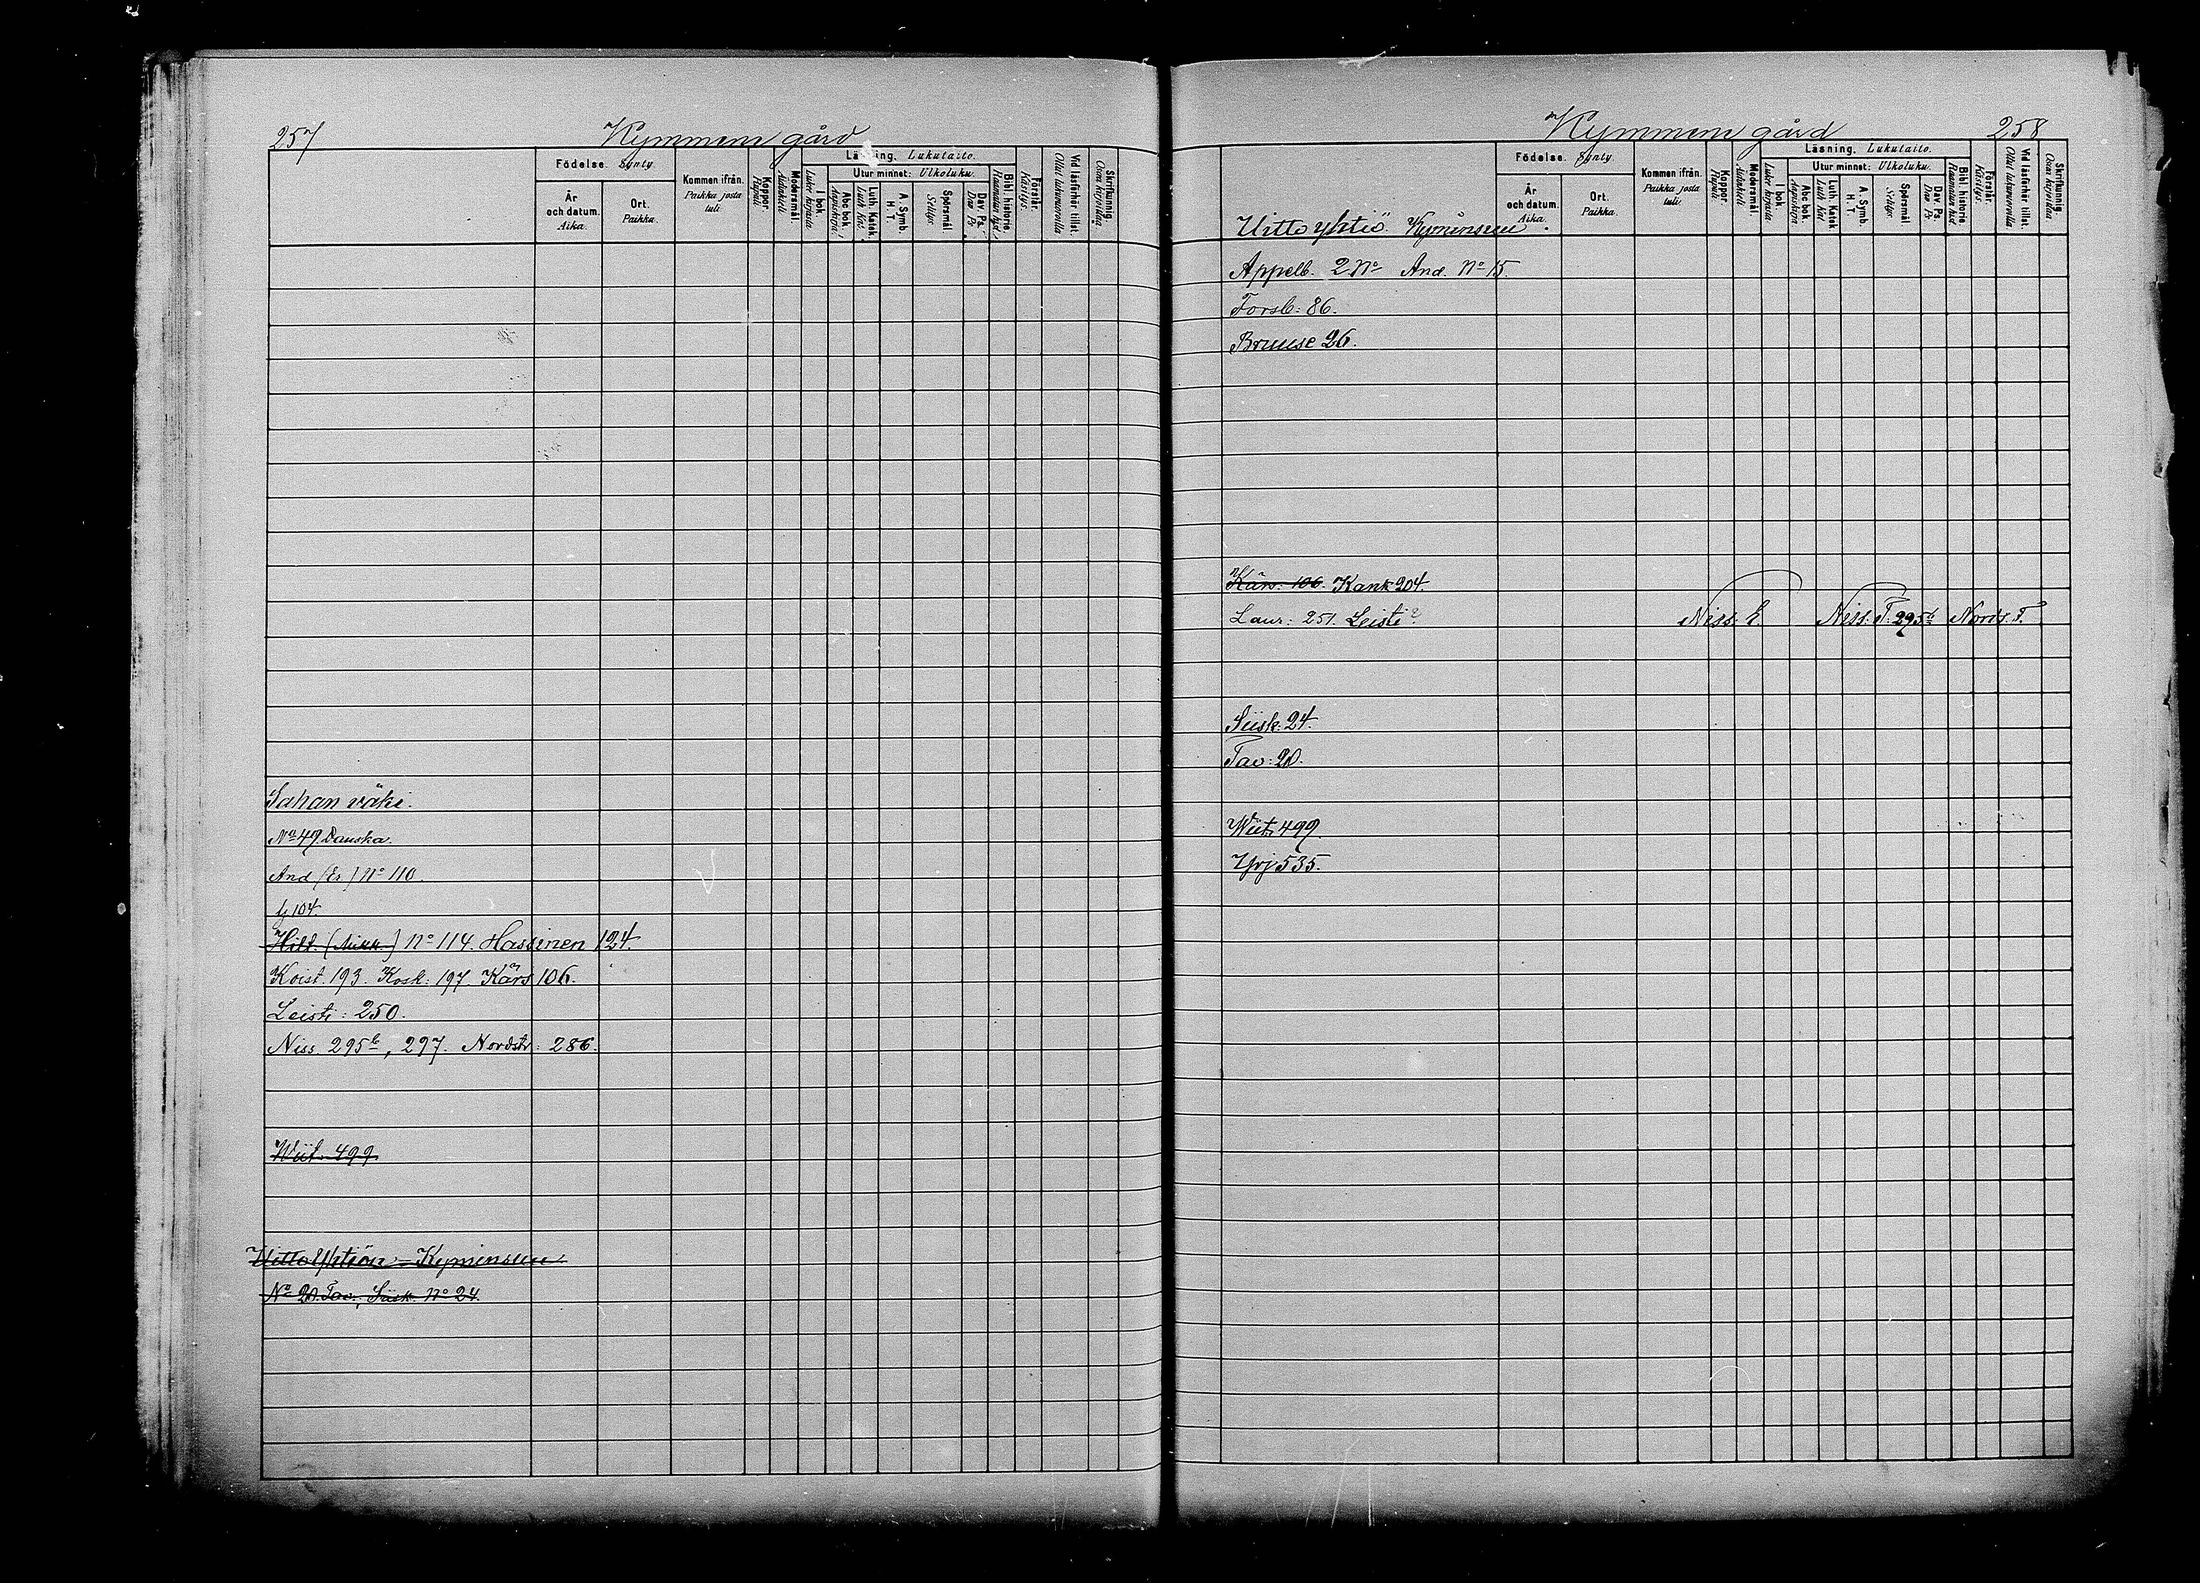 257
Kymmene gård
Födelse. Synty.
År och datum. Aika.
Ort. Paikka.
Kommen ifrån. Paikka josta tuli.
Koppor. Rupuli
Modersmål. Äidinkieli
Läsning. Lukutaito.
I bok. Lukee kirjasta
Utur minnet: Ulkoluku.
Abc bok. Aapiskirja
Luth. Katek. Luth. Kat.
A. Symb. H. T.
Spörsmål Selitys.
Dav. Ps. Dav. Ps.
Bibl. historie. Raamatun hist.
Förstår. Käsitys.
Vid läsförhör tillst. Ollut lukuvuorolla
Skrifkunnig. Osaa kirjoittaa
Sahan väki.
No 49 Danska.
And (Er.) No 110.
G 104.
Hilt. (Mikk.) No 114. Hassinen 124.
Koist. 193. Kosk: 197. Kärs 106.
Leisti: 250.
Niss. 295b, 297. Nordstr: 286.
Wiit. 499
Uitto Yhtiön Kyminsuu
No 20. Tav., Siisk. No 24.
Kymmene gård
258
Födelse. Synty.
År och datum. Aika.
Ort. Paikka.
Kommen ifrån. Paikka josta tuli.
Koppor. Rupuli
Modersmål. Äidinkieli
Läsning. Lukutaito.
I bok. Lukee kirjasta
Utur minnet: Ulkoluku.
Abc bok. Aapiskirja
Luth. Katek Luth. Kat
A. Symb. H. T.
Spörsmål Selitys.
Dav. Ps. Dav. Ps
Bibl. historie. Raamatun hist.
Förstår. Käsitys.
Vid läsförhör tillst. Ollut lukuvuorolla
Skrifkunnig. Osaa kirjoittaa
Uitto yhtiö Kyminsuu.
Appelb. 2 No And. No 15
Forsb: 86.
Bruuse 26.
Kärs. 106. Kank 204.
Laur: 251. Leisti?
Niss. E. Niss. T. 295b Nords. F.
Siisk. 24.
Tav: 20.
Wiit. 499.
Yrj 535.